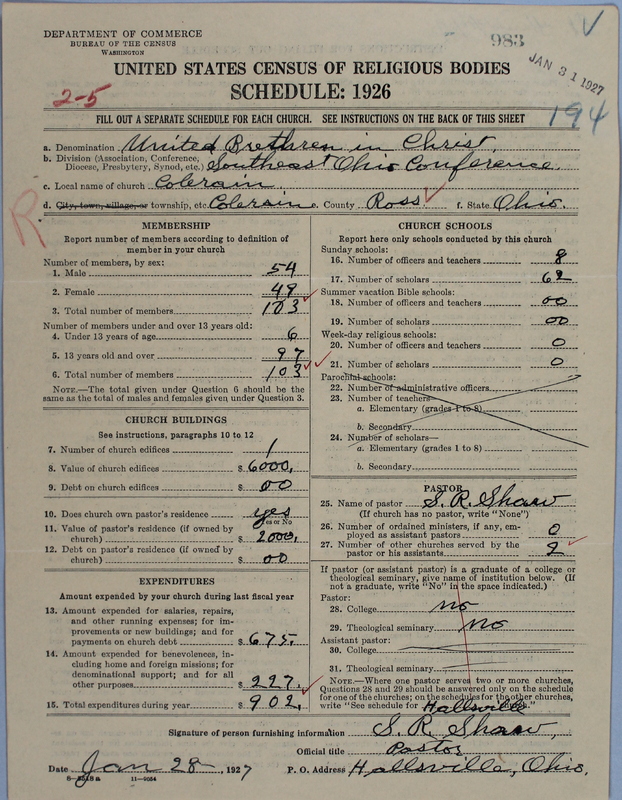 DEPARTMENT OF COMMERCE
BUREAU OF THE CENSUS
WASHINGTON
983
JAN 31 1927
UNITED STATES CENSUS OF RELIGIOUS BODIES
SCHEDULE: 1926
2-5
194
FILL OUT A SEPARATE SCHEDULE FOR EACH CHURCH. SEE INSTRUCTIONS ON THE BACK OF THIS SHEET
a. Denomination United Brethren in Christ.
b. Division (Association, Conference,
Diocese, Presbytery, Synod, etc.) Southeast Ohio Conference.
c. Local name of church Colerain
d. City, town, village, or township, etc. Colerain e. County Ross f. State Ohio.
R
MEMBERSHIP
Report number of members according to definition of
member in your church
Number of members, by sex:
1. Male 54
2. Female 49
3. Total number of members 103
Number of members under and over 13 years old:
4. Under 13 years of age 6
5. 13 years old and over 97
6. Total number of members 103
NOTE.—The total given under Question 6 should be the
same as the total of males and females given under Question 3.
CHURCH BUILDINGS
See instructions, paragraphs 10 to 12
7. Number of church edifices 1
8. Value of church edifices $ 6000.
9. Debt on church edifices $ 00
10. Does church own pastor's residence yes
Yes or No
11. Value of pastor's residence (if owned by
church) $ 2000.
12. Debt on pastor's residence (if owned by
church) $ 00
EXPENDITURES
Amount expended by your church during last fiscal year
13. Amount expended for salaries, repairs,
and other running expenses; for im-
provements or new buildings; and for
payments on church debt $ 675.
14. Amount expended for benevolences, in-
cluding home and foreign missions; for
denominational support; and for all
other purposes $ 227.
15. Total expenditures during year $ 902.
CHURCH SCHOOLS
Report here only schools conducted by this church
Sunday schools:
16. Number of officers and teachers 8
17. Number of scholars 62
Summer vacation Bible schools:
18. Number of officers and teachers 00
19. Number of scholars 00
Week-day religious schools:
20. Number of officers and teachers 0
21. Number of scholars 0
Parochial schools:
22. Number of administrative officers
23. Number of teachers—
a. Elementary (grades 1 to 8)
b. Secondary
24. Number of scholars—
a. Elementary (grades 1 to 8)
b. Secondary
PASTOR
25. Name of pastor S. R. Shaw
(If church has no pastor, write "None")
26. Number of ordained ministers, if any, em-
ployed as assistant pastors 0
27. Number of other churches served by the
pastor or his assistants 2
If pastor (or assistant pastor) is a graduate of a college or
theological seminary, give name of institution below. (If
not a graduate, write "No" in the space indicated.)
Pastor:
28. College no
29. Theological seminary No
Assistant pastor:
30. College
31. Theological seminary
NOTE.—Where one pastor served two or more churches,
Questions 28 and 29 should be answered only on the schedule
for one of the churches; on the schedules for the other churches,
write "See schedule for Hallsville."
Signature of person furnishing information S. R. Shaw,
Official title Pastor
Date Jan 28, 1927 P. O. Address Hallsville, Ohio.
11—9054